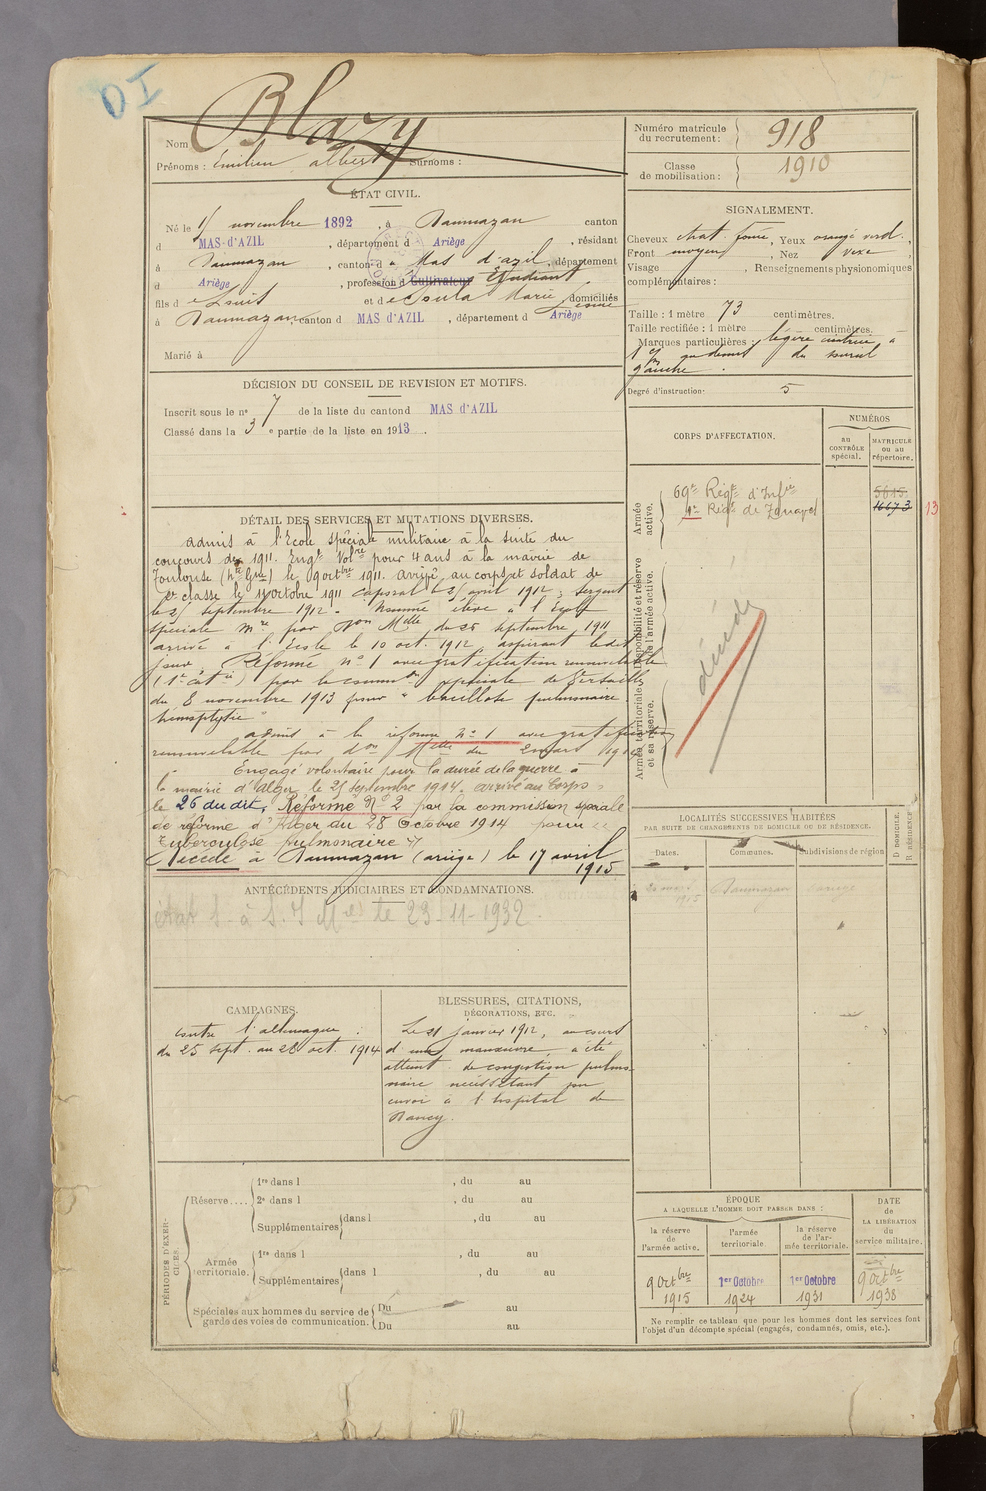 DI
Nom Blazy
Prénoms : Emilien albert Surnoms :
Numéro matricule du recrutement : 918
Classe de mobilisation : 1910
ÉTAT CIVIL.
Né le 15 novembre 1892, à Daumazan canton
d MAS-d'AZIL, département d Ariège, résidant
à Daumazan, canton d u Mas d'azil, département
d Ariège, profession d Cultivateur Etudiant
fils d e Louis et d e Soula Marie domiciliés
à Daumazan, canton d MAS d'AZIL, département d Ariège
Marié à
SIGNALEMENT.
Cheveux chat. foncé, Yeux orangé verd.,
Front moyen, Nez vexe,
Visage , Renseignements physionomiques
complémentaires :
Taille : 1 mètre 73 centimètres.
Taille rectifiée : 1 mètre centimètres.
Marques particulières : légère cicatrice à
1 cm au dessus du sourcil
gauche.
Degré d'instruction · 5
DÉCISION DU CONSEIL DE REVISION ET MOTIFS.
Inscrit sous le n° 7 de la liste du canton d MAS d'AZIL
Classé dans la 3 e partie de la liste en 1913.
CORPS D'AFFECTATION.
NUMÉROS
au CONTRÔLE spécial.
MATRICULE ou au répertoire.
Armée active.
69e Régt d'Infie
1er Régt de Zouaves
5615
16673
13
Disponibilité et réserve de l'armée active.
Armée territoriale et sa réserve.
décédé
DÉTAIL DES SERVICES ET MUTATIONS DIVERSES.
admis à l'Ecole spéciale militaire à la suite du
concours de 1911. Engt Volre pour 4 ans à la mairie de
Toulouse (Hte Gne) le 9 octbre 1911. arrivé au corps et soldat de
2e classe le 11 octobre 1911 caporal le 25 avril 1912, sergent
le 25 septembre 1912. Nommé élève à l'école
spéciale mre par Don Mlle du 25 septembre 1911
arrivé à l'école le 10 oct. 1912, aspirant ledit
jour. Réformé n° 1 avec gratification renouvelable
(1e catie) par la common spéciale de Versailles
du 8 novembre 1913 pour "bacillose pulmonaire
hémoptysie"
admis à la réforme n° 1 avec gratification
renouvelable par don Mlle du 2 mars 1914
Engagé volontaire pour la durée de la guerre à
la mairie d'Alger, le 25 septembre 1914. arrivé au Corps
le 26 du dit, Réformé N° 2 par la commission spéciale
de réforme d'Alger du 28 Octobre 1914 pour
Tuberculose pulmonaire
Décédé à Daumazan (ariège) le 17 avril
1915
LOCALITÉS SUCCESSIVES HABITÉES
PAR SUITE DE CHANGEMENTS DE DOMICILE OU DE RÉSIDENCE.
Dates.
Communes.
Subdivisions de région
D DOMICILE.
R RÉSIDENCE
1915
Daumazan
ANTÉCÉDENTS JUDICIAIRES ET CONDAMNATIONS.
le 23-11-1932.
CAMPAGNES.
contre l'allemagne :
du 25 sept. au 28 oct. 1914
BLESSURES, CITATIONS,
DÉCORATIONS, ETC.
Le 21 janvier 1912, au cours
d'une manœuvre, a été
atteint de congestion pulmo
naire nécessitant son
envoi à l'hopital de
Nancy.
PÉRIODES D'EXERCICES.
Réserve....
1re dans l , du au
2e dans l , du au
Supplémentaires dans l , du au
Armée territoriale.
1re dans l , du au
Supplémentaires dans l , du au
Spéciales aux hommes du service de garde des voies de communication.
Du au
Du au
ÉPOQUE
A LAQUELLE L'HOMME DOIT PASSER DANS :
la réserve de l'armée active.
l'armée territoriale.
la réserve de l'armée territoriale.
DATE de LA LIBÉRATION du service militaire.
9 octbre 1915
1er Octobre 1924
1er Octobre 1931
9 octbre 1938
Ne remplir ce tableau que pour les hommes dont les services font
l'objet d'un décompte spécial (engagés, condamnés, omis, etc.).